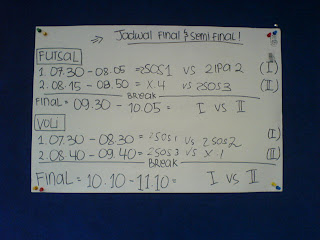 =>> Jadwal Final & Semi Final!
FUTSAL
1. 07.30 - 08.05 = 2SOS1 VS 2IPA2 (I)
2. 08.15 - 08.50 = X.4 VS 2SOS3 (II)
BREAK
FINAL = 09.30 - 10.05 = I VS II
VOLI
1. 07.30 - 08.30 = 2SOS1 VS 2SOS2 (I)
2. 08.40 - 09.40 = 2SOS3 VS X 1 (II)
BREAK
FINAL = 10.10 - 11.10 = I VS II